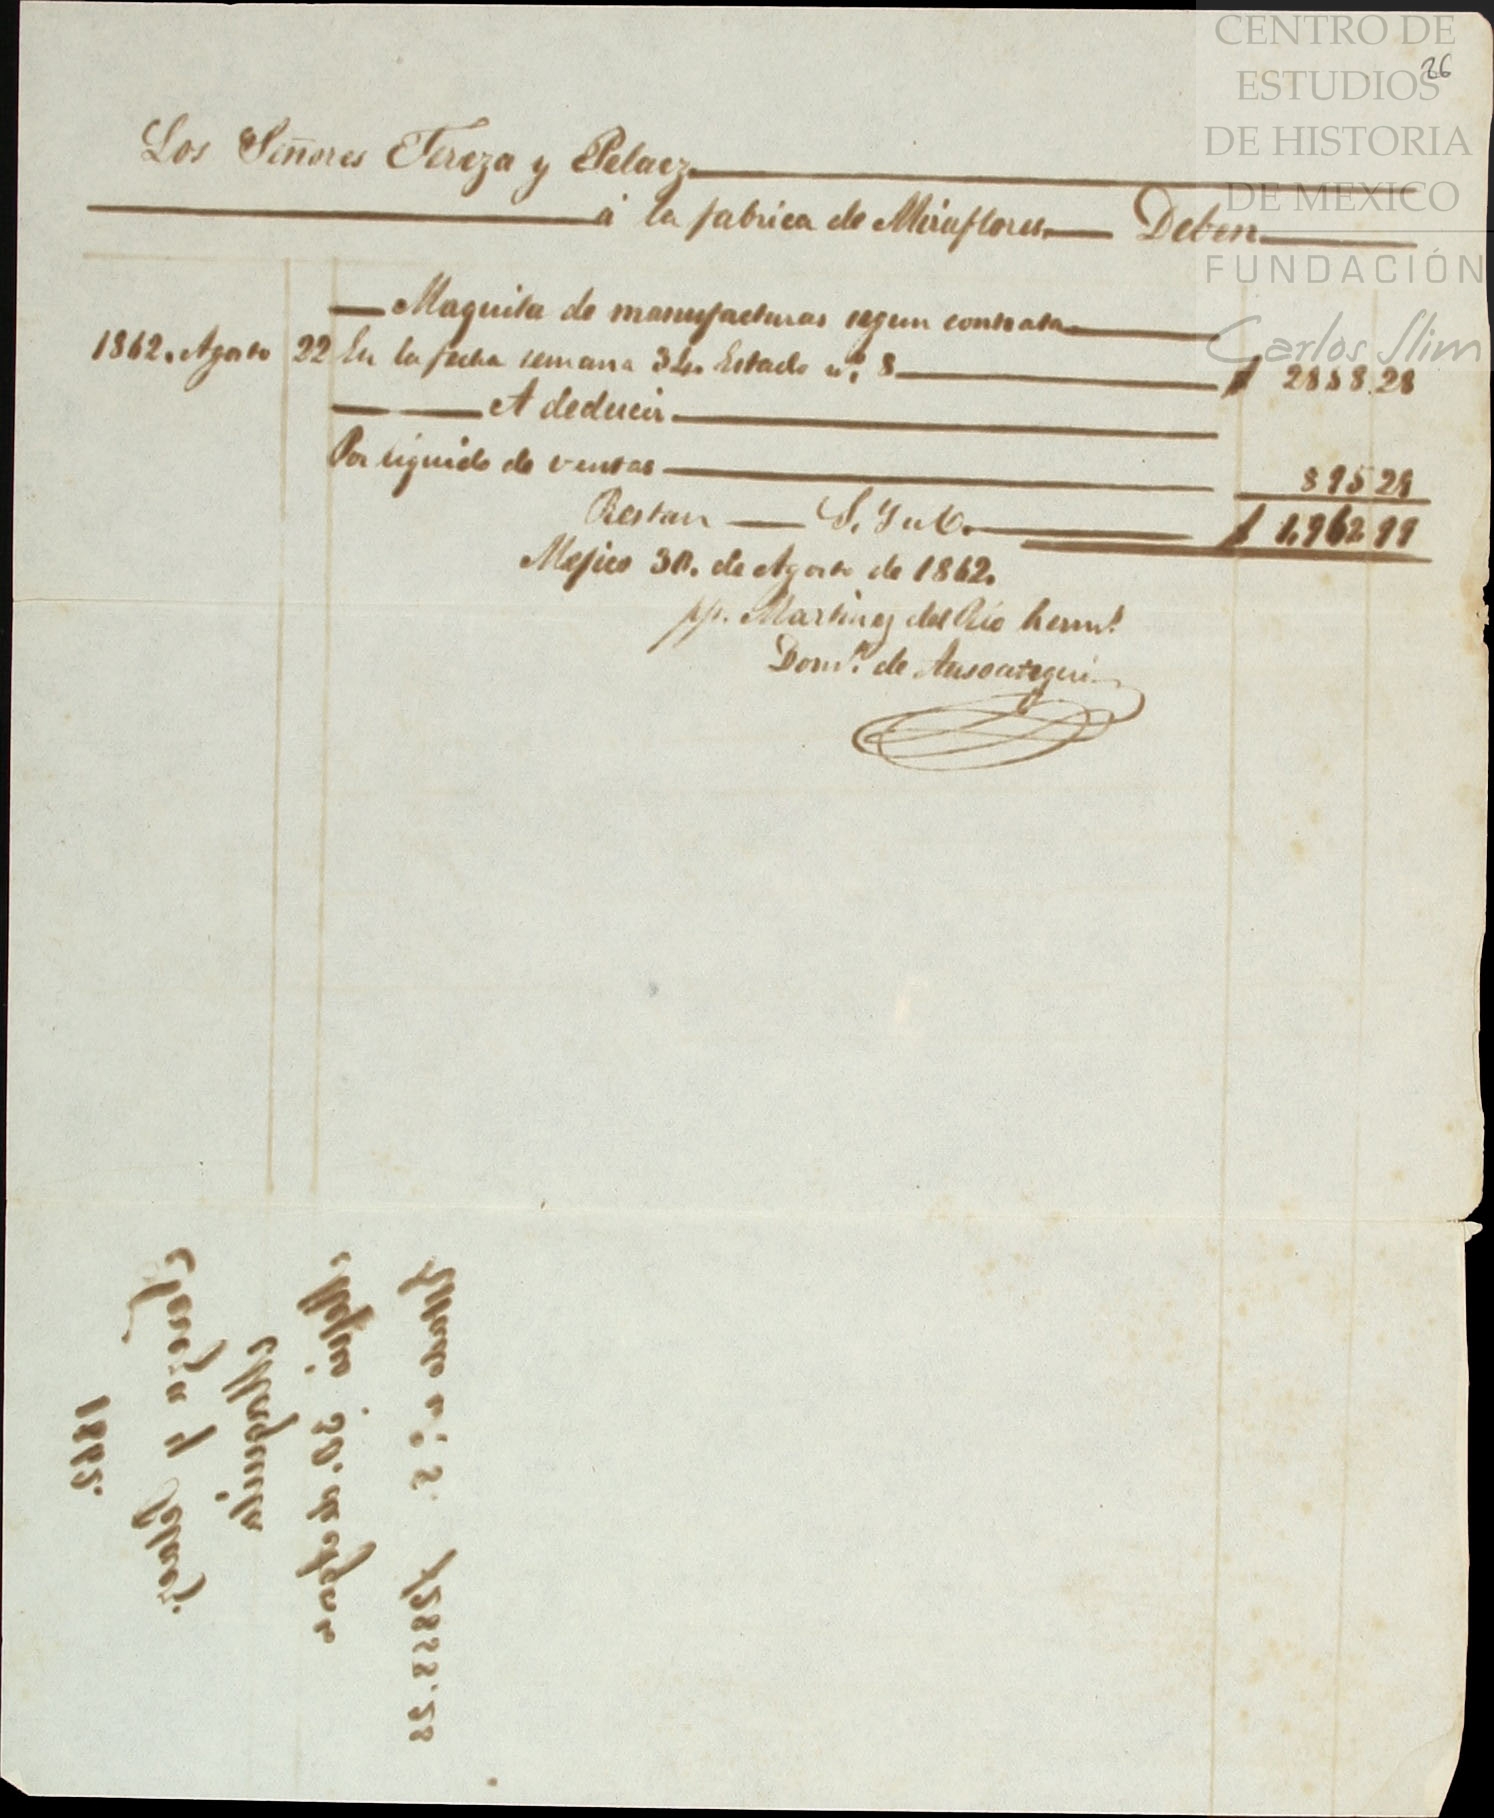 CENTRO DE
ESTUDIOS
DE HISTORIA
DE MEXICO
FUNDACIÓN
Carlos Slim
26
Los Señores Tereza y Pelaez
á la fabrica de Miraflores Deben
Maquila de manufacturas segun contrata
1862. Agosto 22 En la fecha semana 34. Estado nº. 8 $ 2858 28
A deducir
Por liquido de ventas 895 29
Restan S. Y u O. $ 1,962 99
Mejico 30. de Agosto de 1862.
pp. Martinez del Rio herms.
Domo. de Ansoategui
1862.
Mejico 30. de
$2858.28